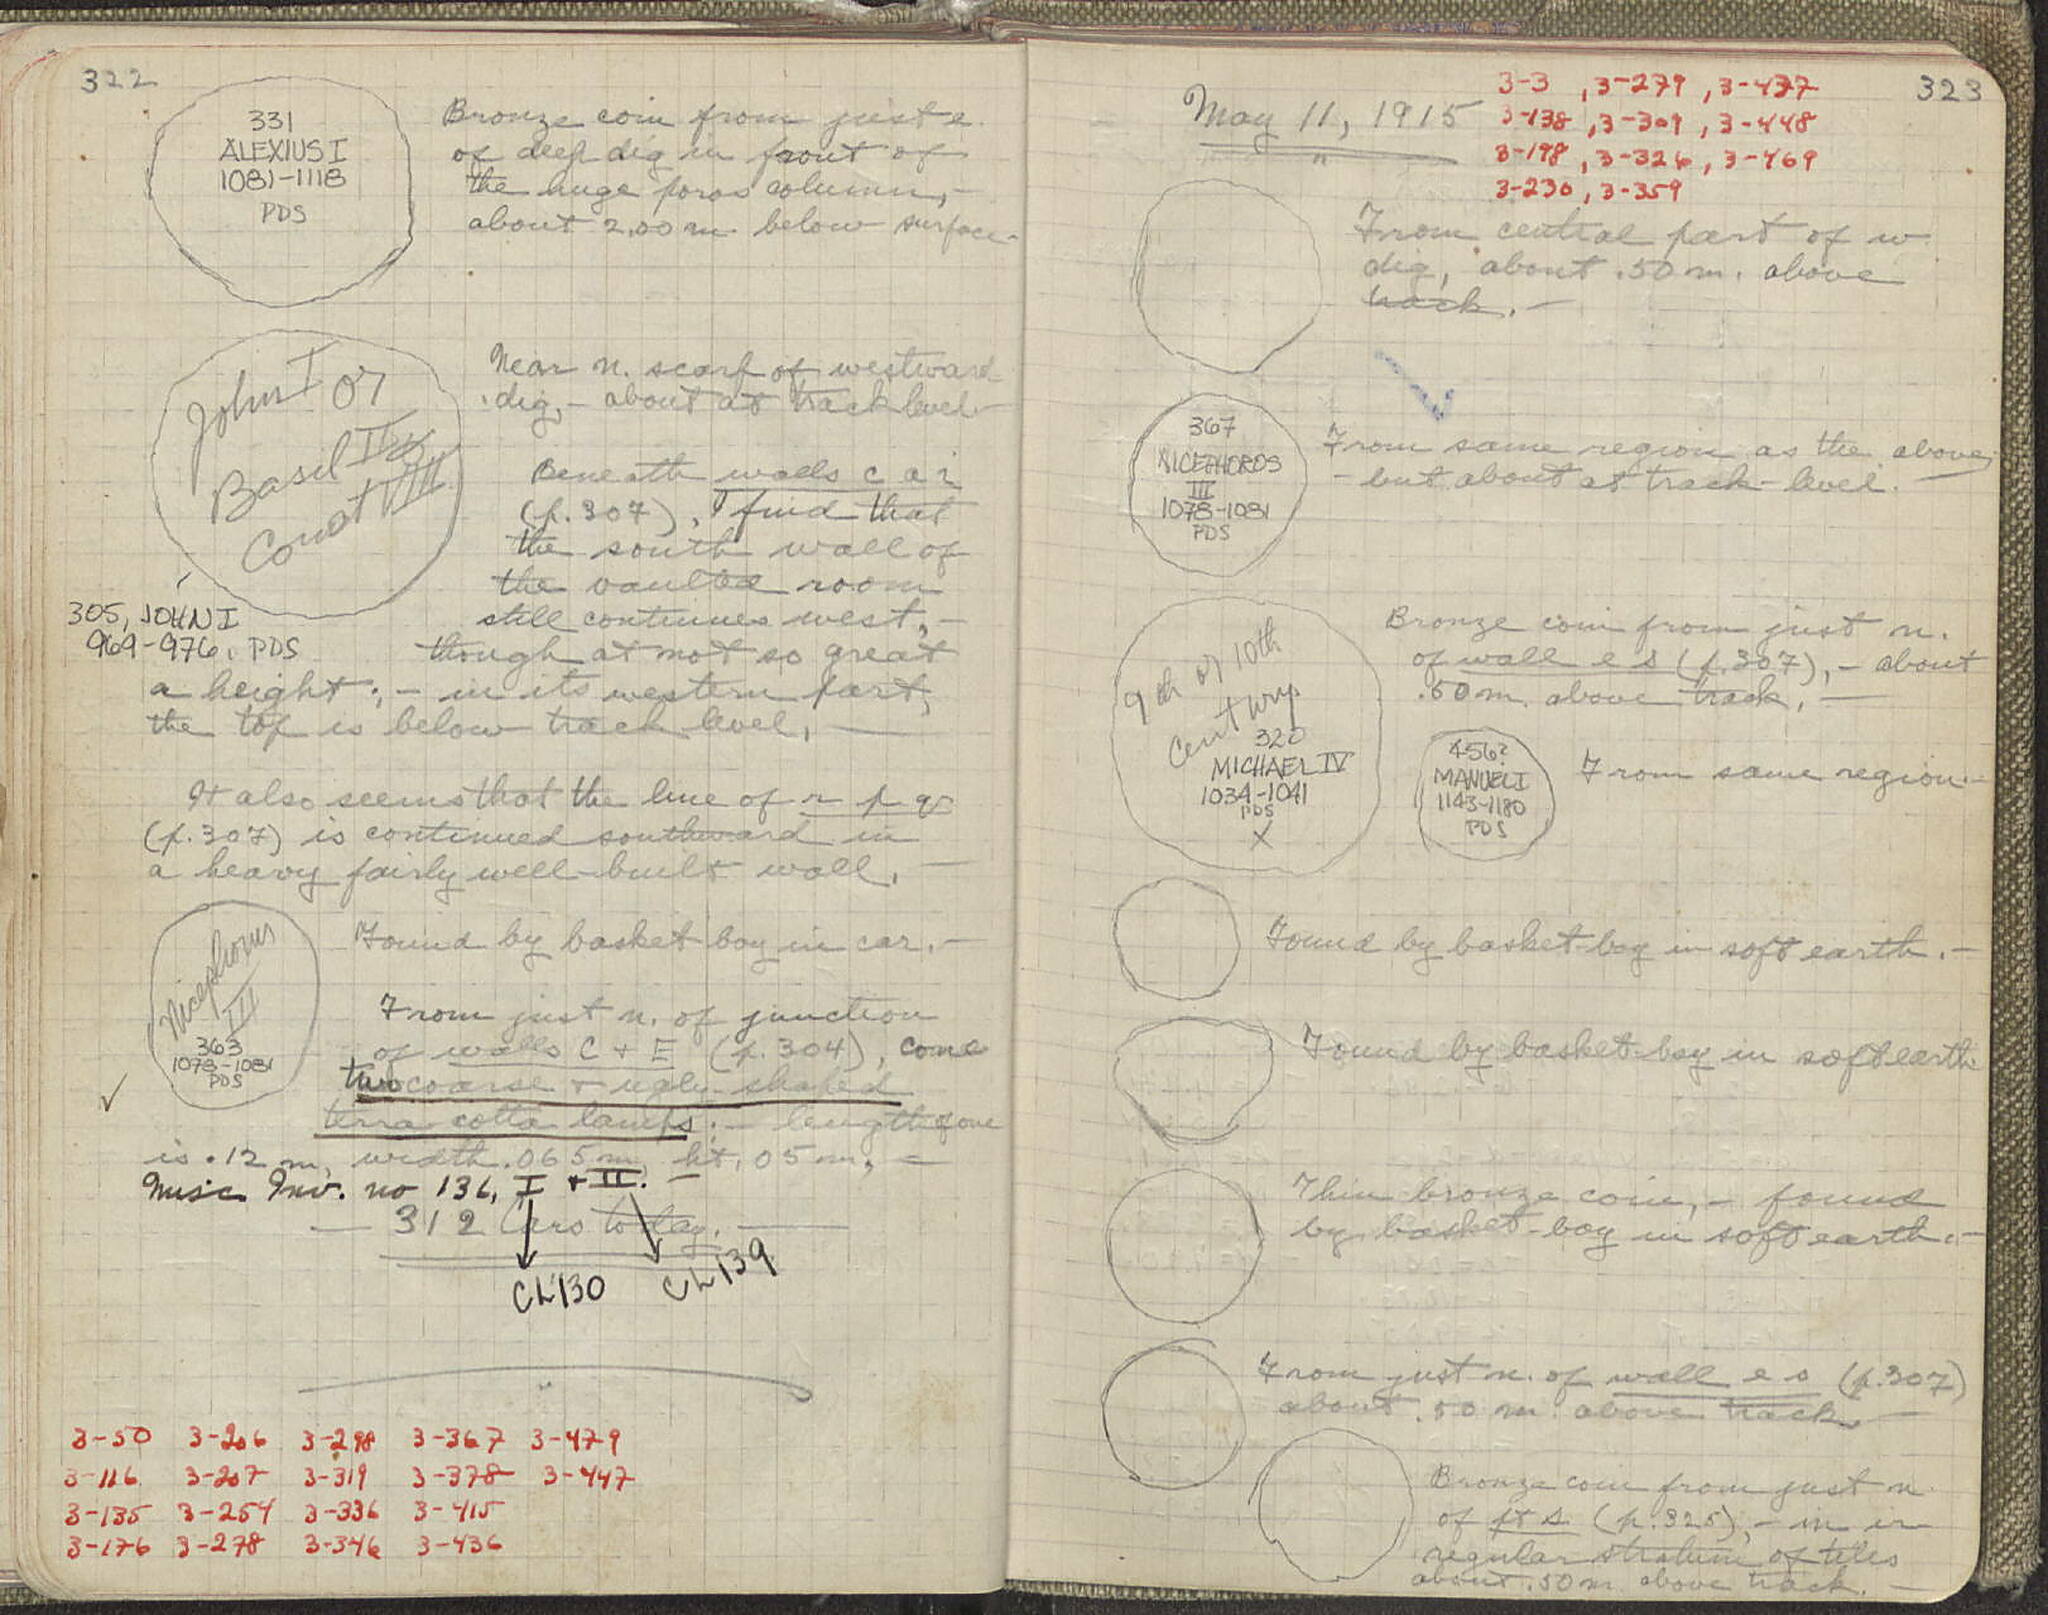 322
331
ALEXIUS I
1081-1118
PDS
Bronze coin from just s.
of deep dig in front of
the huge poros column,-
about 2.00 m. below surface.-
John I or
Basil II &
Const VIII
305, JOHN I
969-976. PDS
Near n. scarf of westward
dig, - about at track level.-
Beneath walls c a i
(p.307), I find that
the south wall of
the vaulted room
still continues west,-
though at not so great
a height; - in its western part,
the top is below track level. —
It also seems that the line of r p q
(p.307) is continued southward in
a heavy fairly well-built wall. —
Nicephorus
III
363
1078-1081
PDS
Found by basket boy in car.-
From just n. of junction
of walls C + E (p.304), come
two coarse + ugly-shaped
terra cotta lamps; - length of one
is .12 m, width .065 m, ht. .05 m. -
Misc. Inv. no 136, I + II. -
— 312 Cars today. —
CL 130
CL 139
3-50 3-206 3-298 3-367 3-479
3-116 3-207 3-319 3-378 3-447
3-135 3-254 3-336 3-415
3-176 3-278 3-346 3-436
323
May 11, 1915
3-3 , 3-279 , 3-437
3-138 , 3-309 , 3-448
3-198 , 3-326 , 3-469
3-230 , 3-359
From central part of w.
dig, about .50 m. above
track. -
367
NICEPHOROS
III
1078-1081
PDS
From same region as the above,
- but about at track-level. —
9th or 10th
century
320
MICHAEL IV
1034-1041
PDS
X
Bronze coin from just n.
of wall e s (p.307), - about
.50 m. above track. —
456?
MANUEL I
1143-1180
PDS
From same region.-
Found by basket-boy in soft earth. -
Found by basket-boy in soft earth.
Thin bronze coin, - found
by basket-boy in soft earth.-
From just n. of wall e s (p.307)
about .50 m. above track. —
Bronze coin from just n.
of pt s (p.325), - in ir-
regular stratum of tiles
about .50 m. above track. —